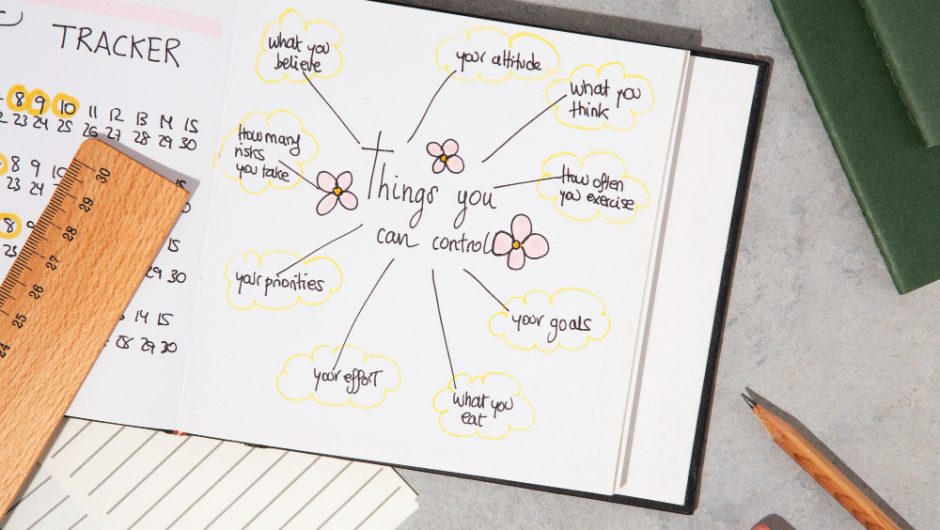 TRACKER
8 9 10 11 12 13 14 15
23 24 25 26 27 28 29 30
8 9 10
23 24 25
29 30
8
15
29 30
14 15
28 29 30
30
29
28
27
26
25
24
what you
believe
your attitude
what you
think
How many
risks
you take
How often
you exercise
Things you
can control
your priorities
your goals
your effort
what you
eat